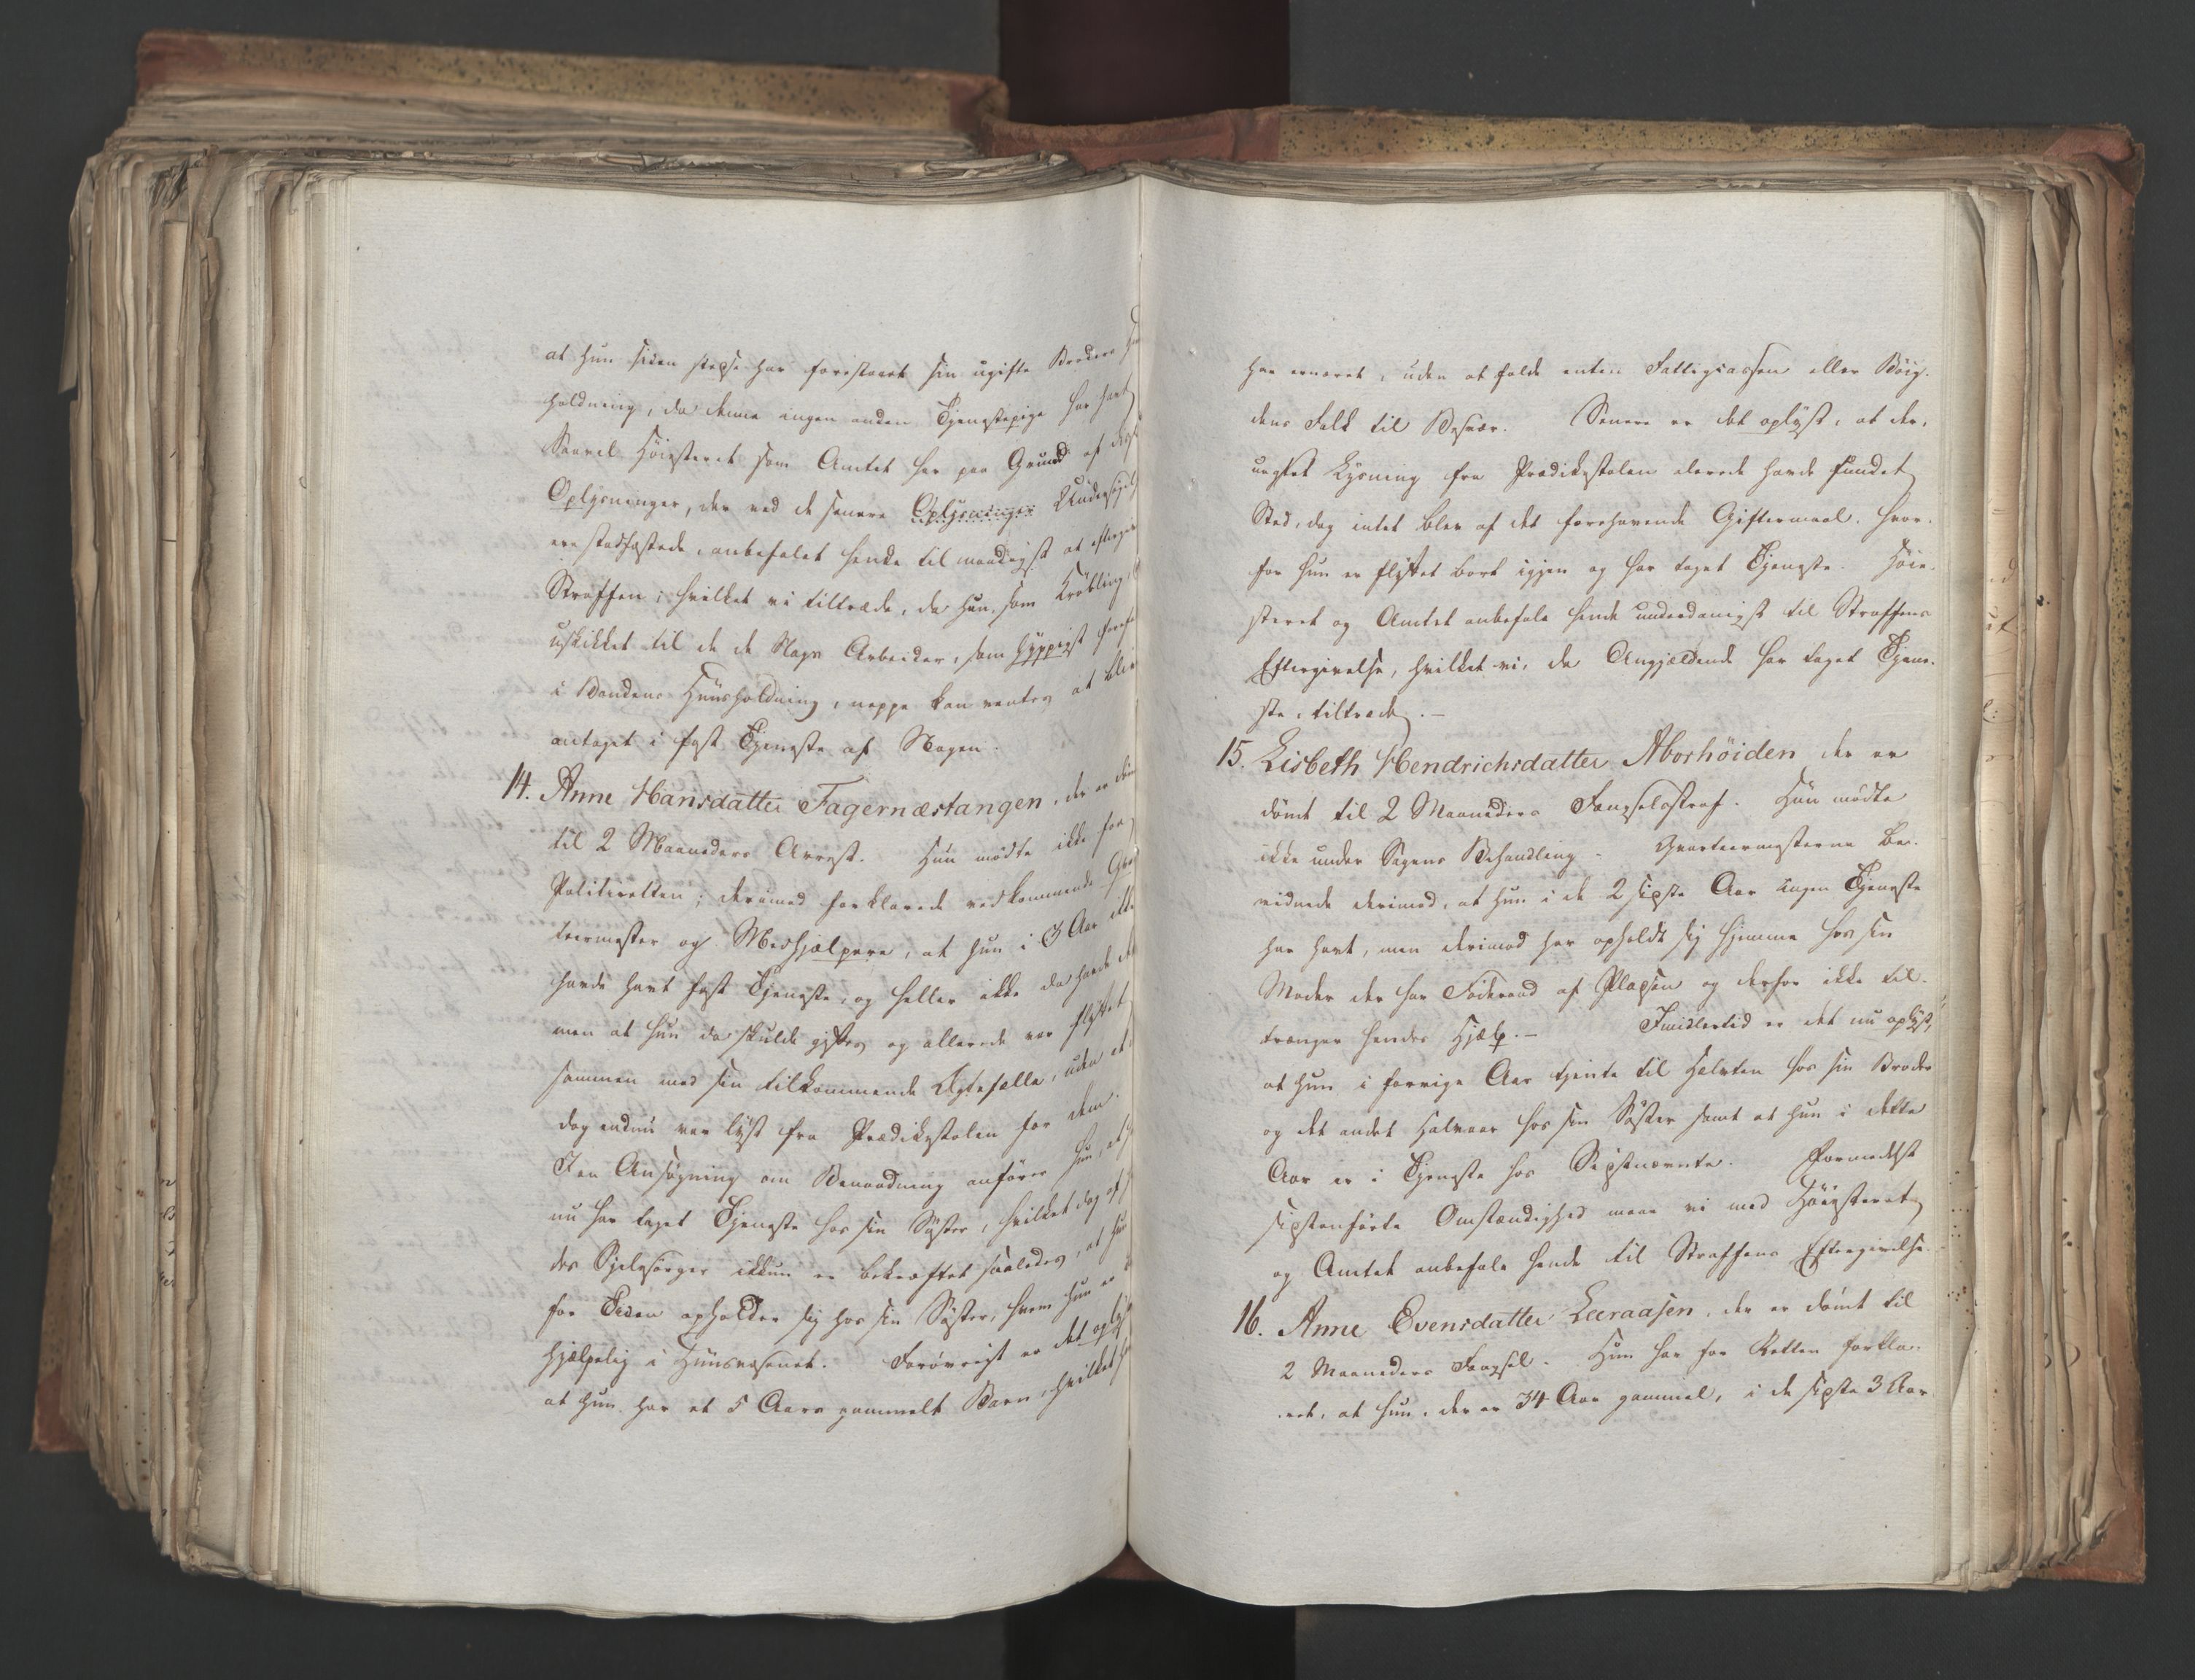 at hun siden stedse har forestaaet sin ugifte Broders
holdning, da denne ingen anden Tjenestepige har havt
Saavel Höiesteret som Amtet har paa Grund af disse
Oplysninger, der ved de senere Oplysninger Undersögelser
ere stadfæstede, anbefalet hende til naadigst at eftergives
Straffen; hvilket vi tiltræde, da hun, som Kröbling
uskikket til de de Slags Arbeider, som hyppigst
i Bondens Huusholdning, neppe kan ventes at blive
antaget i fast Tjeneste af Nogen.
14. Anne Hansdatter Fagernæstangen, der er dömt
til 2 Maaneders Arrest. Hun mödte ikke for
Politiretten; derimod forklarede vedkommende
teermester og Medhjælpere, at hun i 3 Aar ikke
havde havt fast Tjeneste, og heller ikke da havde det
men at hun da skulde giftes og allerede var flyttet
sammen med sin tilkommende Ægtefælle, uden at
dog endnu var lyst fra Prædikestolen for dem.
I en Ansögning om Benaadning anförer hun, at
nu har taget Tjeneste hos sin Söster, hvilket dog af
des Sjelesörger ikkun er bekræftet saaledes, at hun
for Tiden opholder sig hos sin Söster, hvem hun er
hjælpelig i Huusvæsenet. Forövrigt er det oplyst
at hun har et 5 Aars gammelt Barn, hvilket
har ernæret, uden at falde enten Fattigcassen eller Böig-
dens Folk til Besvær. Senere er det oplyst, at der,
uagtet Lysning fra Prædikestolen allerede havde fundet
Sted, dog intet blev af det forehavende Giftermaal, hvor-
for hun er flyttet bort igjen og har taget Tjeneste. Höie-
steret og Amtet anbefale hende underdanigst til Straffens
Eftergivelse, hvilket vi, da Angjældende har taget Tjene-
ste, tiltræde.-
15. Lisbeth Hendrichsdatter Aborhöiden der er
dömt til 2 Maaneders Fængselsstraf. Hun mödte
ikke under Sagens Behandling. Qvarteermesterne be-
vidnede derimod, at hun i de 2 sidste Aar ingen Tjeneste
har havt, men derimod har opholdt sig hjemme hos sin
Moder der har Föderaad af Pladsen og derfor ikke til-
trænger hendes Hjælp.- Imidlertid er det nu oplyst,
at hun i forrige Aar tjente til Halvten hos sin Broder
og det andet Halvaar hos sin Söster samt at hun i dette
Aar er i Tjeneste hos Sidstnævnte. Formedelst
sidstanförte Omstændighed maae vi med Höiesteret
og Amtet anbefale hende til Straffens Eftergivelse.
16. Anne Evensdatter Leeraasen, der er dömt til
2 Maaneders Fængsel. Hun har for Retten forkla-
ret, at hun, der er 34 Aar gammel, i de sidste 3 Aar